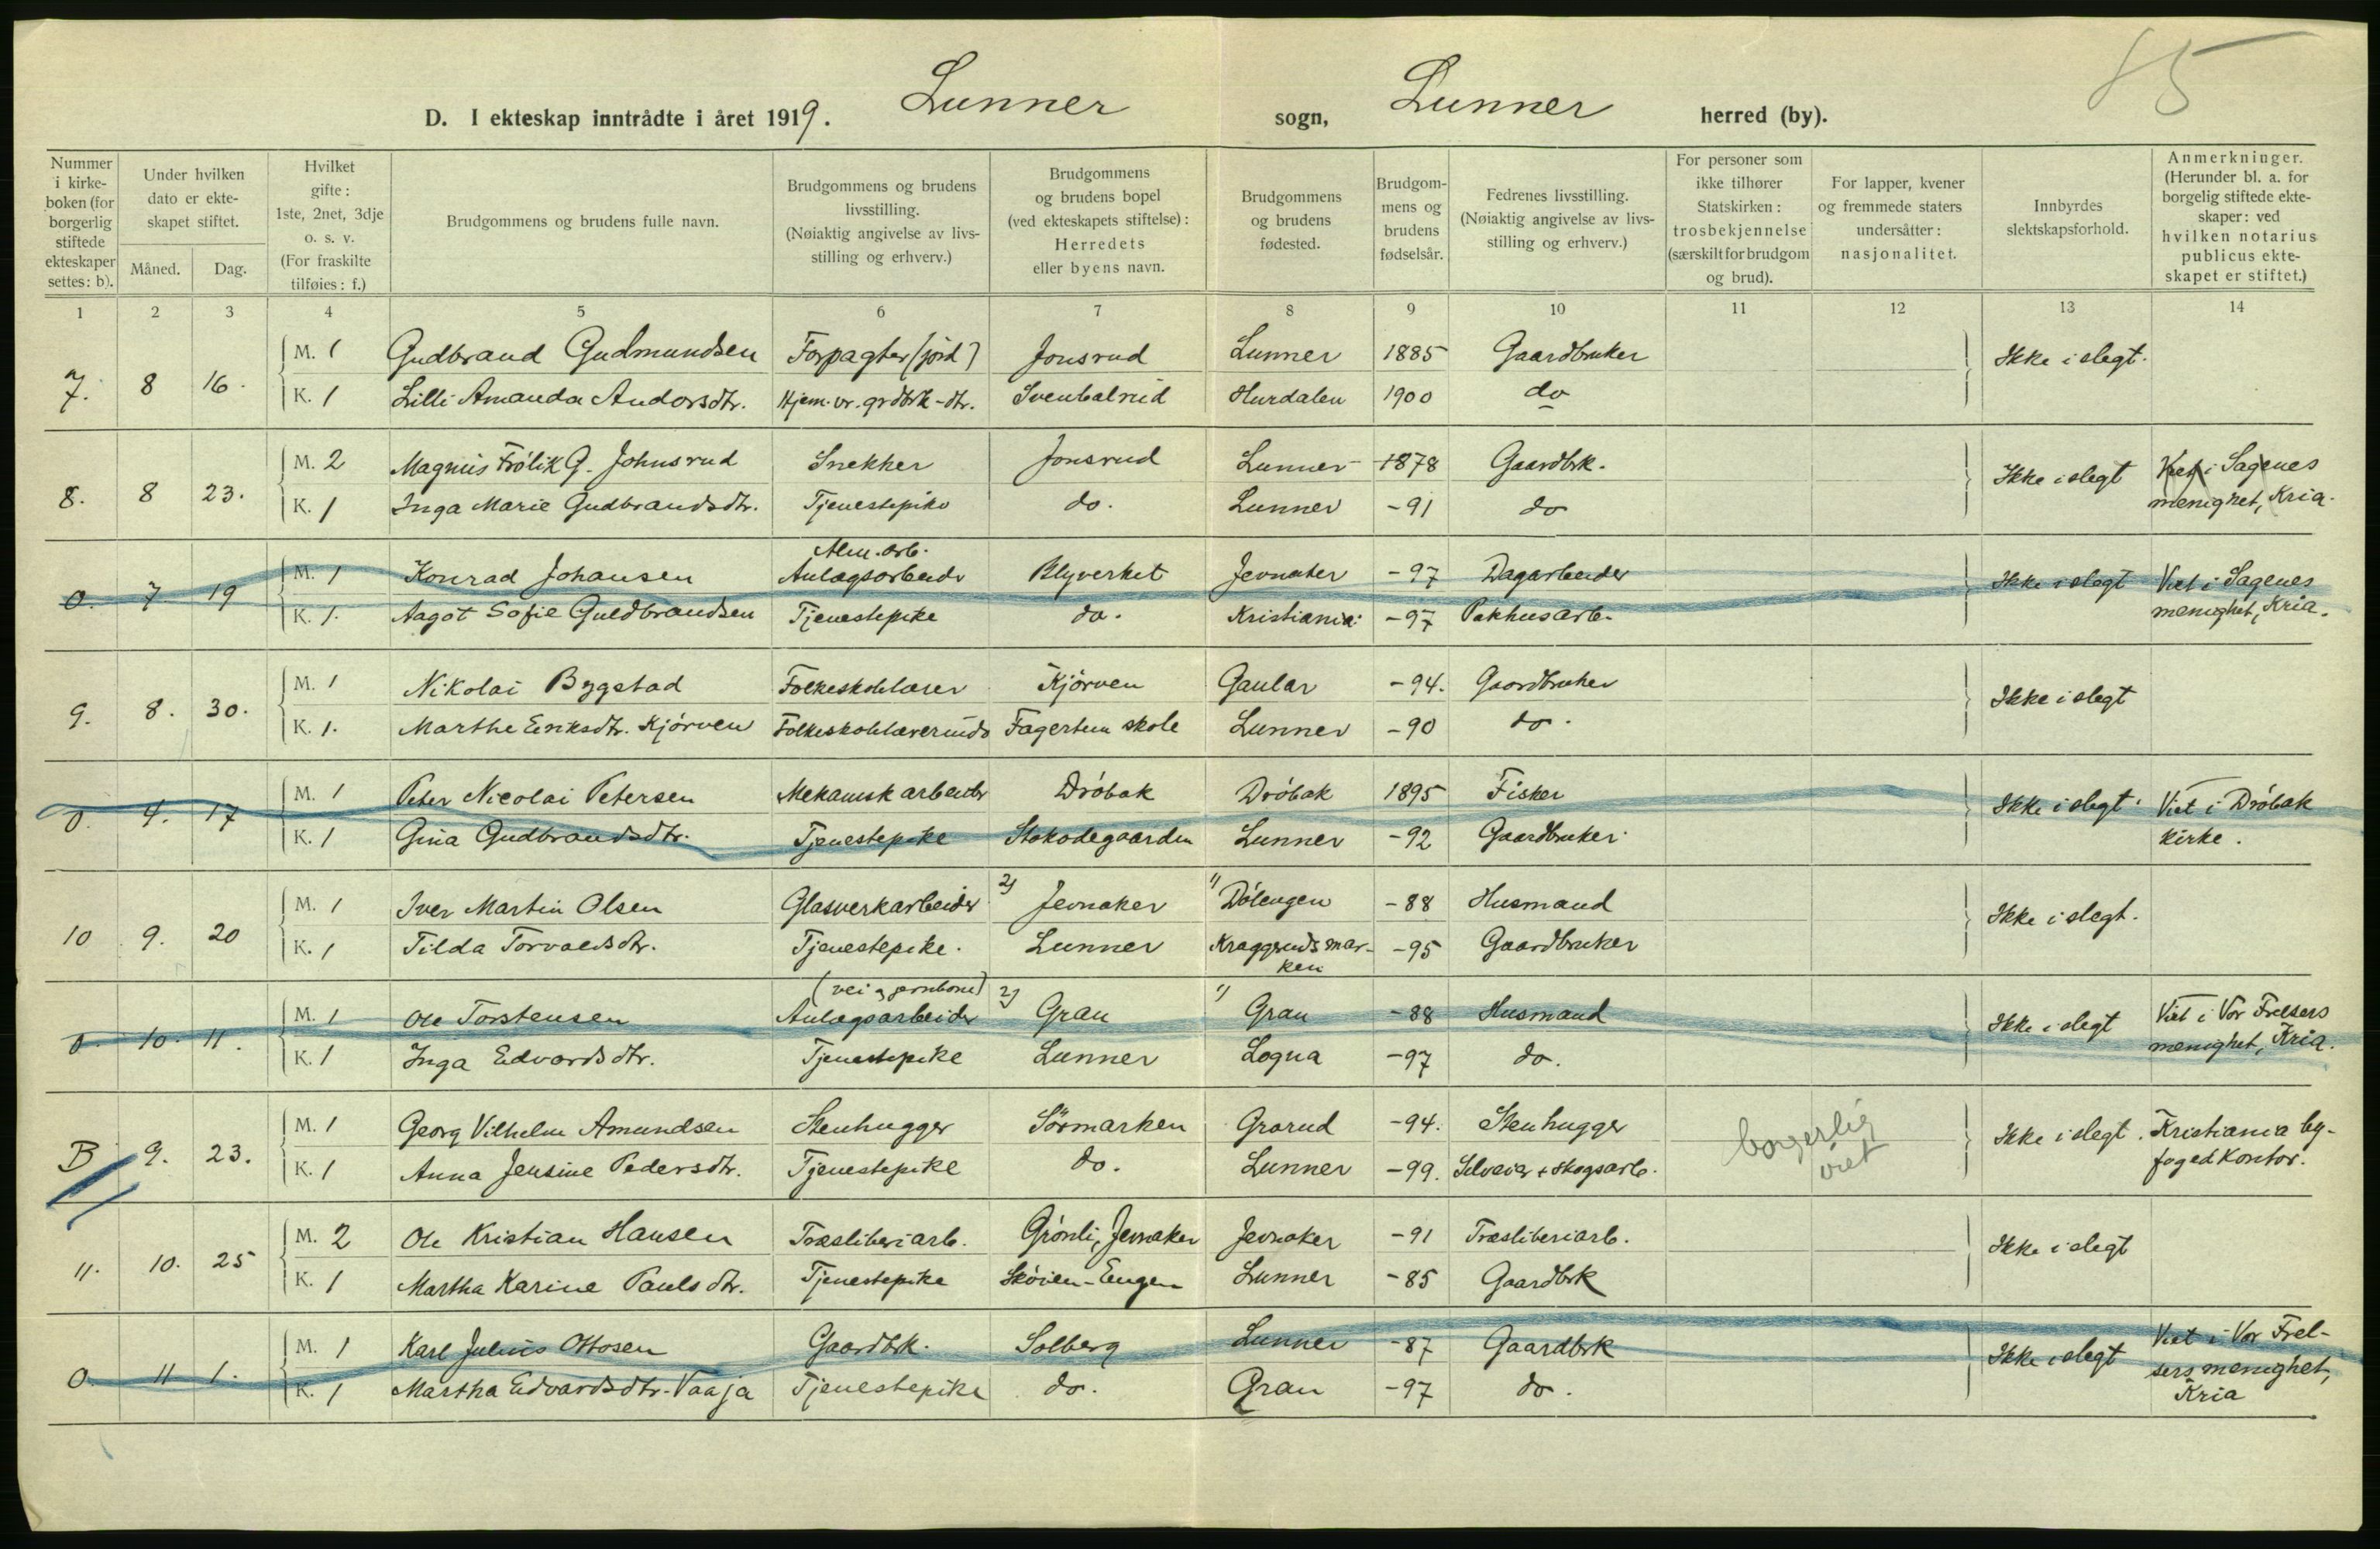 85
D. I ekteskap inntrådte i året 1919. Lunner sogn, Lunner herred (by).
Nummer i kirke-boken (for borgerlig stiftede ekteskaper settes: b).
Under hvilken dato er ekte-skapet stiftet.
Måned. Dag.
Hvilket gifte: 1ste, 2net, 3dje o. s. v. (For fraskilte tilføies: f.)
Brudgommens og brudens fulle navn.
Brudgommens og brudens livsstilling. (Nøiaktig angivelse av livs-stilling og erhverv.)
Brudgommens og brudens bopel (ved ekteskapets stiftelse): Herredets eller byens navn.
Brudgommens og brudens fødested.
Brudgom-mens og brudens fødselsår.
Fedrenes livsstilling. (Nøiaktig angivelse av livs-stilling og erhverv.)
For personer som ikke tilhører Statskirken: trosbekjennelse (særskilt for brudgom og brud).
For lapper, kvener og fremmede staters undersåtter: nasjonalitet.
Innbyrdes slektskapsforhold.
Anmerkninger. (Herunder bl. a. for borgerlig stiftede ekte-skaper: ved hvilken notarius publicus ekte-skapet er stiftet.)
1 2 3 4 5 6 7 8 9 10 11 12 13 14
M. 1 Gudbrand Gudmundsen Forpagter (jord) Jonsrud Lunner 1885 Gaardbruker
7. 8 16. Ikke i slegt.
K. 1 Lilli Amanda Andorsdtr. Hjem. vr. grdbrk-dtr. Svenbalrud Hurdalen 1900 do
M. 2 Magnus Frölik G. Johnsrud Snekker Jonsrud Lunner 1878 Gaardbrk.
8. 8 23. Ikke i slegt Viet i Sagenes
K. 1 Inga Marie Gudbrandsdtr. Tjenestepike do. Lunner -91 do menighet, Kria.
Alm. arb.
M. 1 Konrad Johansen Anlægsarbeider Blyverket Jevnaker -97 Dagarbeider
0. 7. 19 Ikke i slegt Viet i Sagenes
K. 1. Aagot Sofie Guldbrandsen Tjenestepike do. Kristiania -97 Pakhusarb. menighet, Kria.
M. 1 Nikolai Bygstad Folkeskolelærer Kjörven Gaular -94. Gaardbruker
9. 8. 30. Ikke i slegt
K. 1. Marthe Eriksdtr. Kjörven Folkeskolelærerinde Fagertun skole Lunner -90 do.
M. 1 Peter Nicolai Petersen Mekanisk arbeider Dröbak Dröbak 1895 Fisker
0. 4. 17 Ikke i slegt. Viet i Dröbak
K. 1 Gina Gudbrandsdtr. Tjenestepike Stokodegaarden Lunner -92 Gaardbruker. kirke.
M. 1 Iver Martin Olsen Glasverkarbeider 2) Jevnaker 1) Dölengen -88 Husmand
10 9. 20 Ikke i slegt.
K. 1 Tilda Torvaldsdtr. Tjenestepike. Lunner Kraggerudsmar- -95 Gaardbruker
ken
(vei og jernbane)
M. 1 Ole Torstensen Anlægsarbeider 2) Gran 1) Gran -88 Husmand Viet i Vor Frelsers
0. 10. 11. Ikke i slegt menighet, Kria.
K. 1 Inga Edvardsdtr. Tjenestepike Lunner Logna -97 do.
M. 1 Georg Vilhelm Amundsen Stenhugger Sörmarken Grorud -94. Stenhugger borgerlig
B 9. 23. Ikke i slegt. Kristiania by-
K. 1 Anna Jensine Pedersdtr. Tjenestepike do. Lunner -99. Selveier + skogsarb. viet fogedkontor.
M. 2 Ole Kristian Hansen Træsliberiarb. Grönli, Jevnaker Jevnaker -91 Træsliberiarb.
11. 10. 25 Ikke i slegt
K. 1 Martha Karine Paulsdtr. Tjenestepike Sköien-Engen Lunner -85 Gaardbrk
M. 1 Karl Julius Ottosen Gaardbrk. Solberg Lunner -87 Gaardbrk Viet i Vor Frel-
0. 11 1. Ikke i slegt sers menighet,
K. 1 Martha Edvardsdtr. Vaaja Tjenestepike do. Gran -97 do. Kria